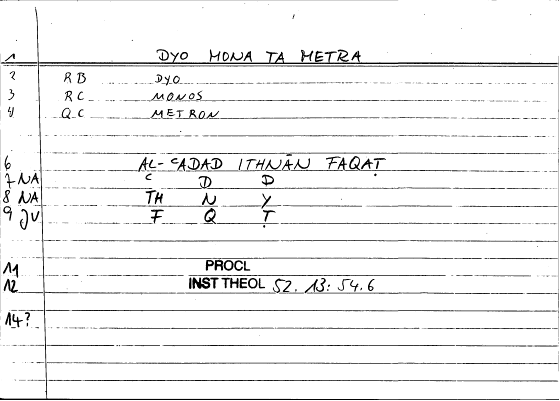 1 DYO MONA TA METRA
2 RB DYO
3 RC MONOS
4 QC METRON
6 AL-ʿADAD ITHNĀN FAQAṬ
7 NA ʿ D D
8 NA TH N Y
9 JU F Q Ṭ
11 PROCL
12 INST THEOL 52. 13: 54.6
14?